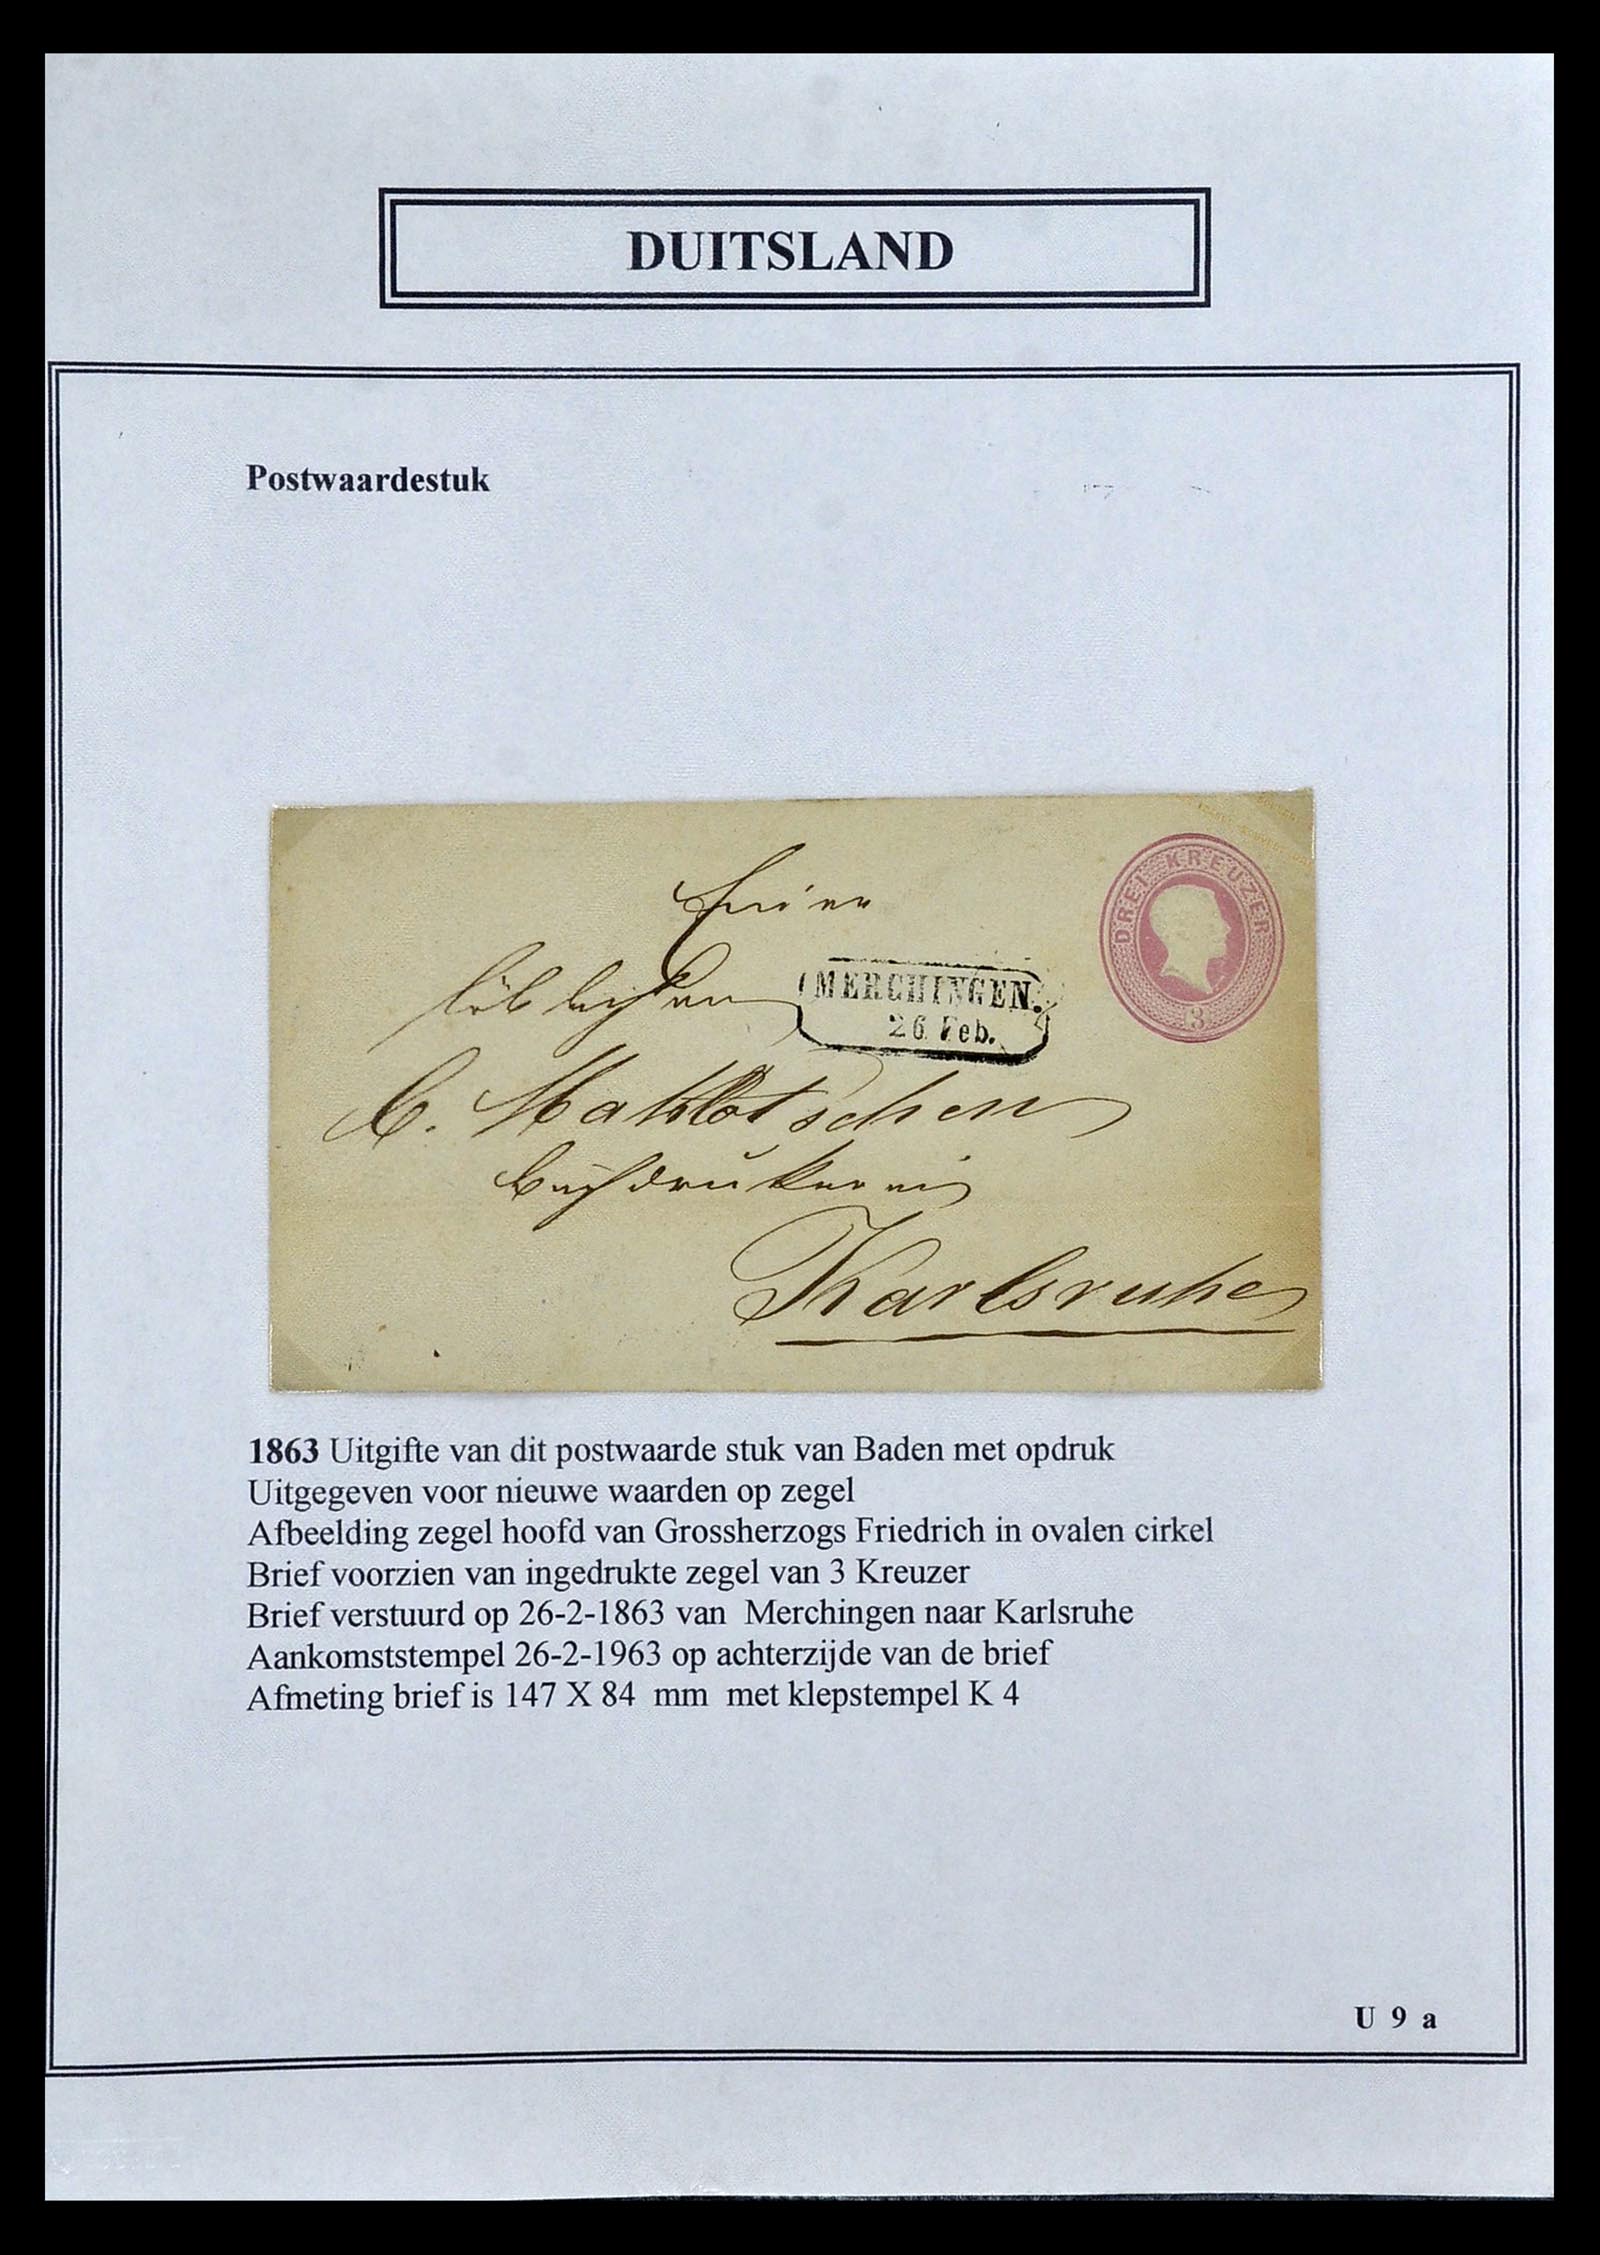 DUITSLAND
Postwaardestuk
DREI KREUZER
3
Einer
löblichen
MERCHINGEN.
26 Feb.
C. Macklot'schen
Buchdruckerei
Karlsruhe
1863 Uitgifte van dit postwaarde stuk van Baden met opdruk
Uitgegeven voor nieuwe waarden op zegel
Afbeelding zegel hoofd van Grossherzogs Friedrich in ovalen cirkel
Brief voorzien van ingedrukte zegel van 3 Kreuzer
Brief verstuurd op 26-2-1863 van Merchingen naar Karlsruhe
Aankomststempel 26-2-1963 op achterzijde van de brief
Afmeting brief is 147 X 84 mm met klepstempel K 4
U 9 a